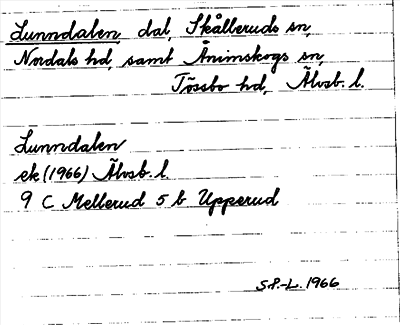 Lunndalen, dal, Skålleruds sn,
Nordals hd, samt Ånimskogs sn,
Tössbo hd, Älvsb. l.
Lunndalen
ek (1966) Älvsb. l.
9 C Mellerud 5 b Upperud
S.P.-L. 1966